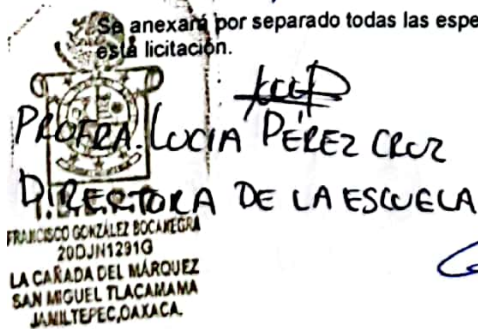 Se anexará por separado todas las espe
esta licitación.
PROFRA. LUCIA PÉREZ CRUZ
DIRECTORA DE LA ESCUELA
FRANCISCO GONZÁLEZ BOCANEGRA
20DJN1291G
LA CAÑADA DEL MÁRQUEZ
SAN MIGUEL TLACAMAMA
JAMILTEPEC, OAXACA.